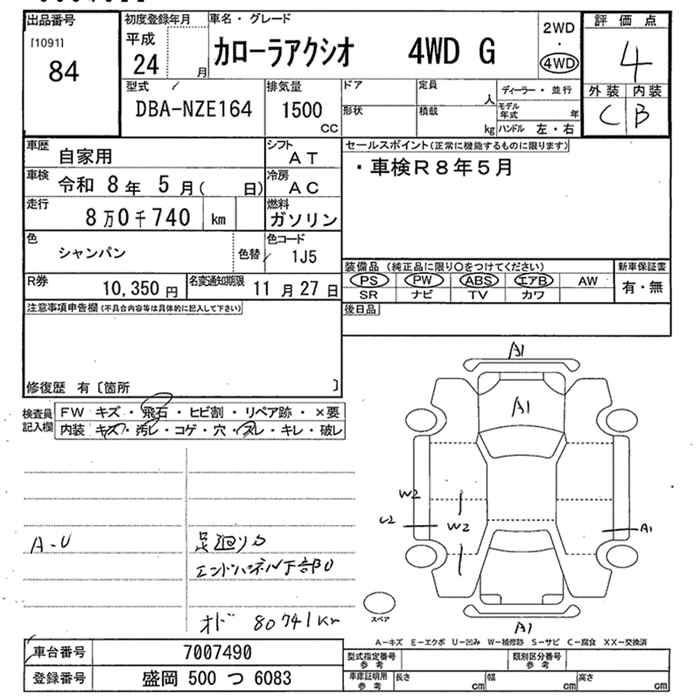 出品番号
[1091]
84
初度登録年月
平成
24 月
車名・グレード
カローラアクシオ 4WD G
2WD
・
4WD
評価点
4
外装 内装
C B
型式
DBA-NZE164
排気量
1500
cc
ドア
形状
定員
人
積載
kg
ディーラー・並行
モデル年式 年
ハンドル 左・右
車歴
自家用
シフト
AT
セールスポイント(正常に機能するものに限ります)
・車検R8年5月
車検
令和 8年 5月( 日)
冷房
AC
走行
8万0千740 km
燃料
ガソリン
色
シャンパン
色替
色コード
1J5
R券
10,350円
名変通知期限
11月27日
装備品(純正品に限り○をつけてください)
新車保証書
PS PW ABS エアB AW
有・無
SR ナビ TV カワ
後日品
注意事項申告欄(不具合内容等は具体的に記入して下さい)
修復歴 有〔箇所 〕
検査員記入欄
FW キズ・飛石・ヒビ割・リペア跡・×要
内装 キズ・汚レ・コゲ・穴・スレ・キレ・破レ
A-U
足廻りカ
エンドパネル下部U
オド 80741km
A1
A1
W2
U2
W2
A1
A1
スペア
A-キズ E-エクボ U-凹み W-補修跡 S-サビ C-腐食 XX-交換済
車台番号
7007490
登録番号
盛岡 500 つ 6083
型式指定番号
参考
類別区分番号
参考
車庫証明用
参考
長さ cm
幅 cm
高さ cm